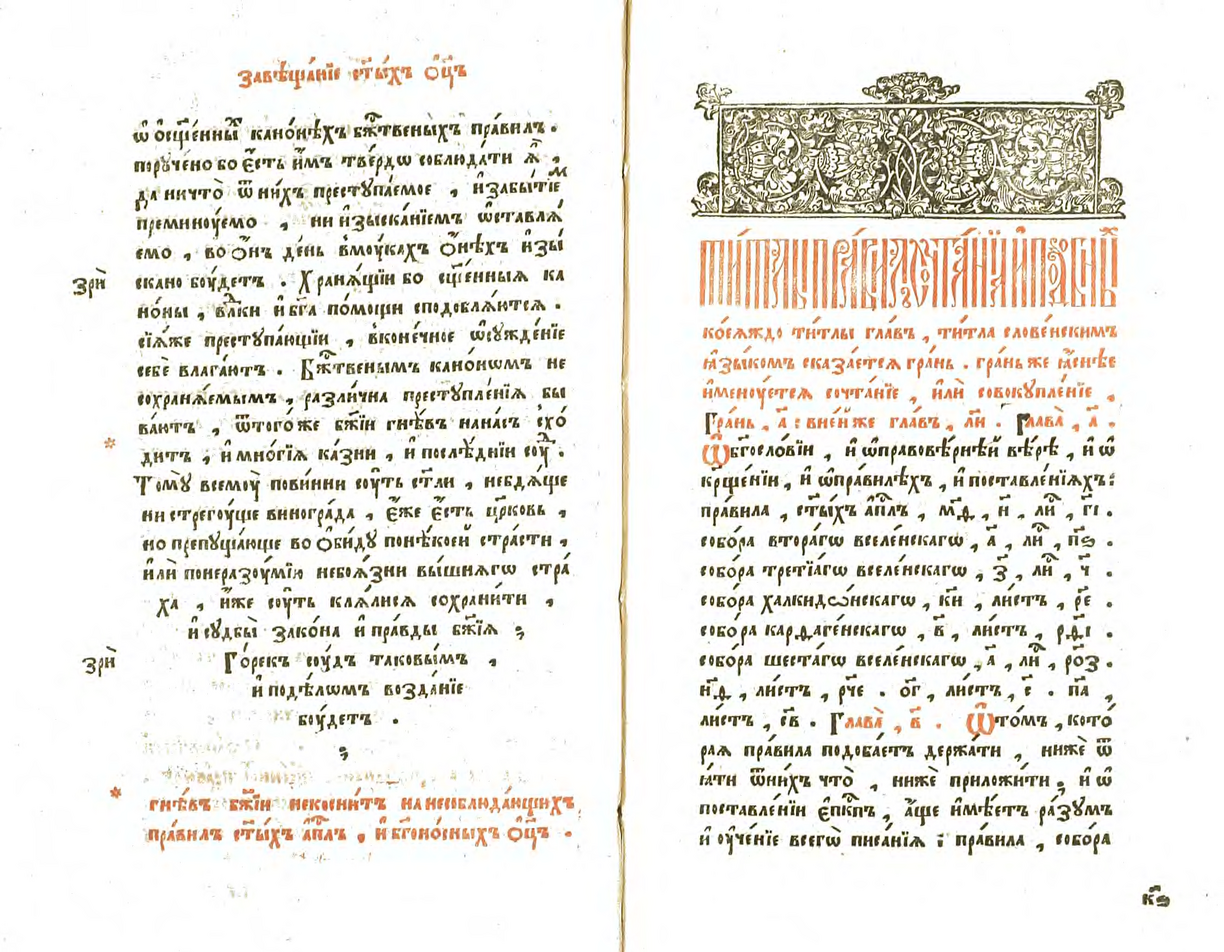 завѣща́нїе ст҃ы́хъ ѻ҆ц҃ъ
ѡ҆ ѻсщ҃е́нны кано́нѣхъ бж҃твеныхъ пра́вилъ.
пору́чено бо є҆́сть и҆̀мъ тве́рдѡ соблюда́ти ѧ҆̀,
да ничто̀ ѿни́хъ престꙋпа́емое, и҆забытїе́м
преминꙋ́емо, ни и҆зыска́нїемъ ѡ҆ставлѧ́
емо, во ѻ҆́нъ де́нь в мꙋ́кахъ ѻ҆́нѣхъ и҆зы́
скано бꙋ́детъ. Хранѧ́щїи бо сщ҃е́нныѧ ка
зрѝ
но́ны, влⷣки и҆ бг҃а по́мощи сподоблѧ́ютсѧ.
сїѧ́же престꙋпа́ющїи, в коне́чное ѡ҆сꙋжде́нїе
себѐ влага́ютъ. Бж҃твенымъ кано́нѡмъ не
сохранѧ́емымъ, разли́чна престꙋпле́нїѧ бы
ва́ютъ, ѿтого́же бж҃їи гнѣ́въ на на́съ схо́
*
дитъ, и҆ мно́гїѧ ка́зни, и҆ послѣ́днїи сꙋⷣ.
Томꙋ̀ всемꙋ̀ пови́нни сꙋ́ть ст҃ли, небдѧ́ще
ни стрегꙋ́ще виногра́да, є҆́же є҆́сть цр҃ковь,
но препꙋща́юще во ѻ҆би́дꙋ по нѣ́коей стра́сти,
и҆лѝ понеразꙋ́мїю небоѧ́зни вы́шнѧгѡ стра́
ха, и҆́же сꙋ́ть клѧ́лисѧ сохрани́ти,
и҆ сꙋдбы̀ зако́на и҆ пра́вды бж҃їѧ;
Го́рекъ сꙋ́дъ таковы́мъ,
зрѝ
и҆ подѣ́лѡмъ возда́нїе
бꙋ́детъ.
;
* гнѣ́въ бж҃їи некосни́тъ на несоблюда́ющихъ,
пра́вилъ ст҃ы́хъ а҆пⷭ҇лъ, и҆ бг҃оно́сныхъ ѻ҆ц҃ъ.
коеѧ́ждо ти́тлы гла́въ, ти́тла слове́нскимъ
ꙗ҆зы́комъ сказа́етсѧ гра́нь. гра́нь же ꙗ҆́снѣе
и҆менꙋ́етсѧ сочта́нїе, и҆лѝ совокꙋпле́нїе,
Гра́нь, а҃: в не́йже гла́въ, л҃и. Глава̀, а҃.
Ѡ҆ бг҃осло́вїи, и҆ ѡ҆ правовѣ́рнѣй вѣ́рѣ, и҆ ѡ҆
крⷭ҇ще́нїи, и҆ ѡ҆ пра́вилѣхъ, и҆ поставле́нїѧхъ:
пра́вила, ст҃ы́хъ а҆пⷭ҇лъ, м҃ѳ, и҆, н҃, лиⷭ, г҃і.
собо́ра втора́гѡ вселе́нскагѡ, а҃, лиⷭ, п҃ѕ.
собо́ра тре́тїагѡ вселе́нскагѡ, з҃, лиⷭ, ч҃.
собо́ра халкидѡ́нскагѡ, к҃и, ли́стъ, р҃е.
собо́ра карѳаге́нскагѡ, в҃, ли́стъ, рѳ҃і.
собо́ра шеста́гѡ вселе́нскагѡ, а҃, лиⷭ, ро҃з.
н҃ѳ, ли́стъ, рч҃е. о҃г, ли́стъ, с҃. п҃а,
ли́стъ, с҃в. Глава̀, в҃. Ѡ҆ то́мъ, кото́
раѧ пра́вила подоба́етъ держа́ти, нижѐ ѿ
ꙗ҆́ти ѿни́хъ что̀, нижѐ приложи́ти, и҆ ѡ҆
поставле́нїи є҆пⷭ҇кпъ, а҆́ще и҆мѣ́етъ ра́зꙋмъ
и҆ ᲂу҆че́нїе всегѡ̀ писа́нїѧ: пра́вила, собо́ра
к҃ѕ